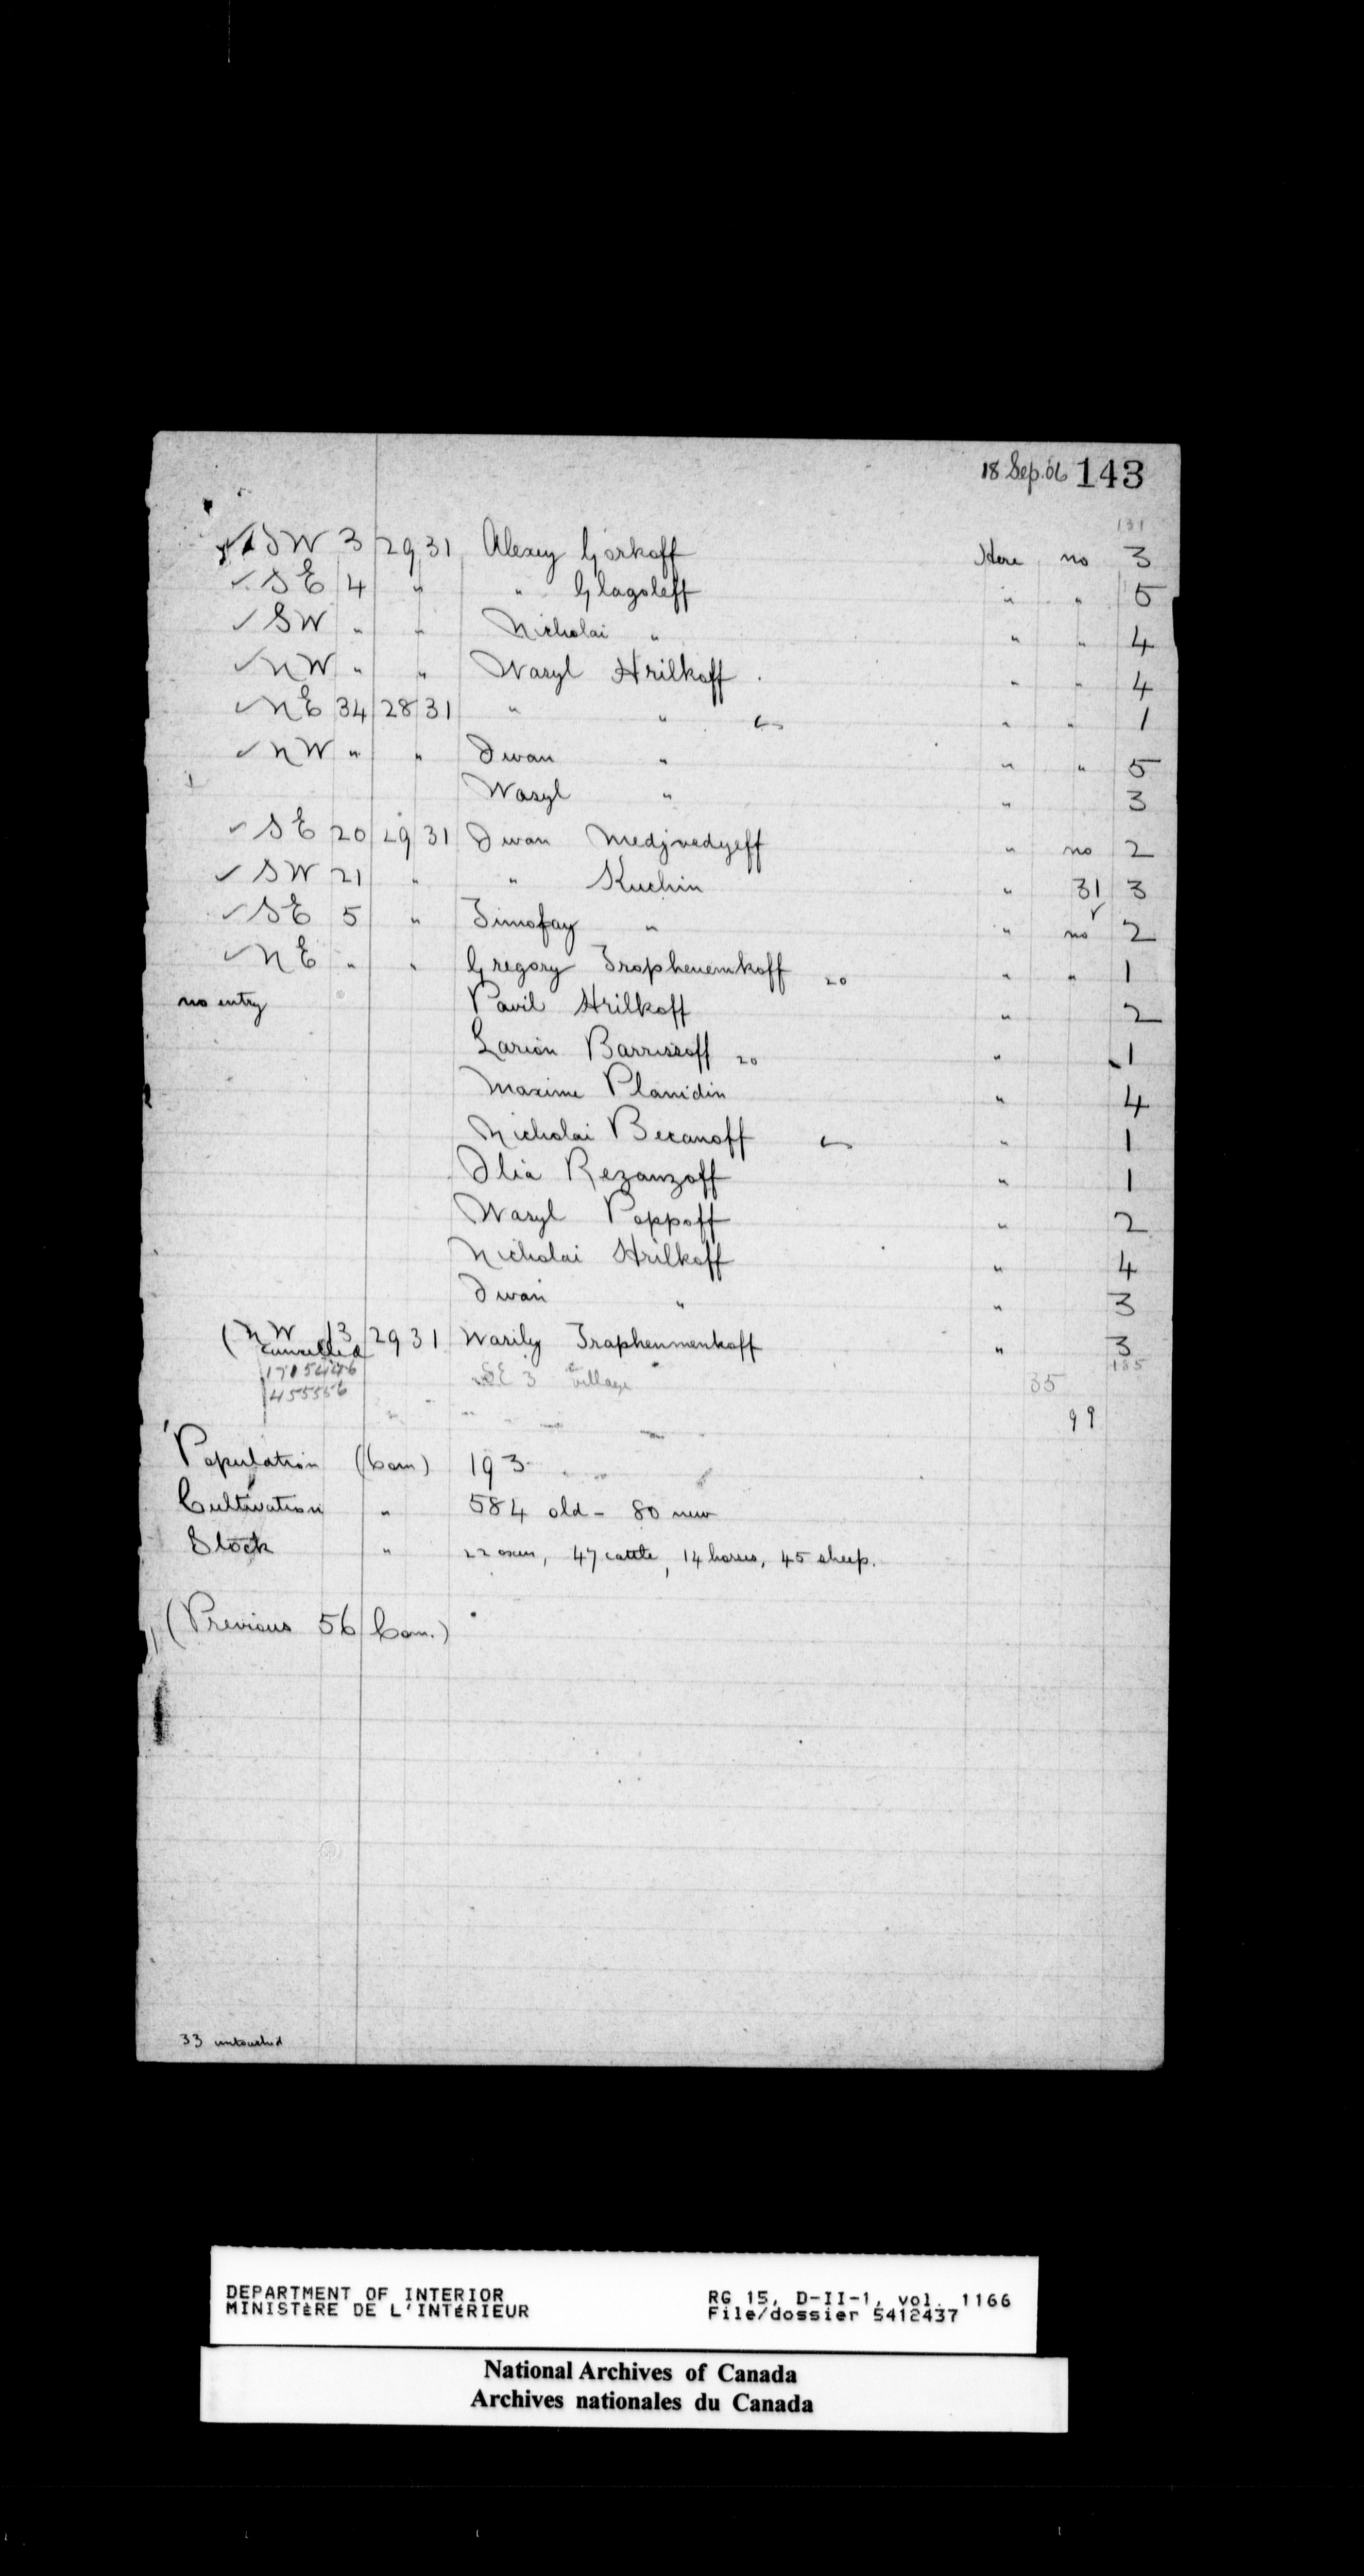 18 Sep. 06 143
131
✓ SW 3 29 31 Alexey Gorkoff Here no 3
✓ SE 4 " " Glagoleff " " 5
✓ SW " " Nicholai " " " 4
✓ NW " " Wasyl Hrilkoff . " " 4
✓ NE 34 28 31 " " " " 1
✓ NW " " Iwan " " " 5
Wasyl " " 3
✓ SE 20 29 31 Iwan Medjvedyeff " no 2
✓ SW 21 " " Kuchin " 31 3
✓ SE 5 " Timofay " " no 2
✓ NE " " Gregory Trophenemkoff 20 " " 1
no entry Pavil Hrilkoff " 2
Larion Barrissoff 20 " 1
Maxime Planidin " 4
Nicholai Becanoff " 1
Ilia Rezanzoff " 1
Wasyl Poppoff " 2
Nicholai Hrilkoff " 4
Iwan " " 3
(NW 13 29 31 Warily Traphenmenkoff " 3
cancelled
185
SE 3 village 35
455556
99
Population (Com) 193
Cultivation " 584 old - 80 new
Stock " 22 oxen, 47 cattle, 14 horses, 45 sheep.
(Previous 56 Com.)
33 untouched
DEPARTMENT OF INTERIOR
MINISTÈRE DE L'INTÉRIEUR
RG 15, D-II-1, vol. 1166
File/dossier 5412437
National Archives of Canada
Archives nationales du Canada